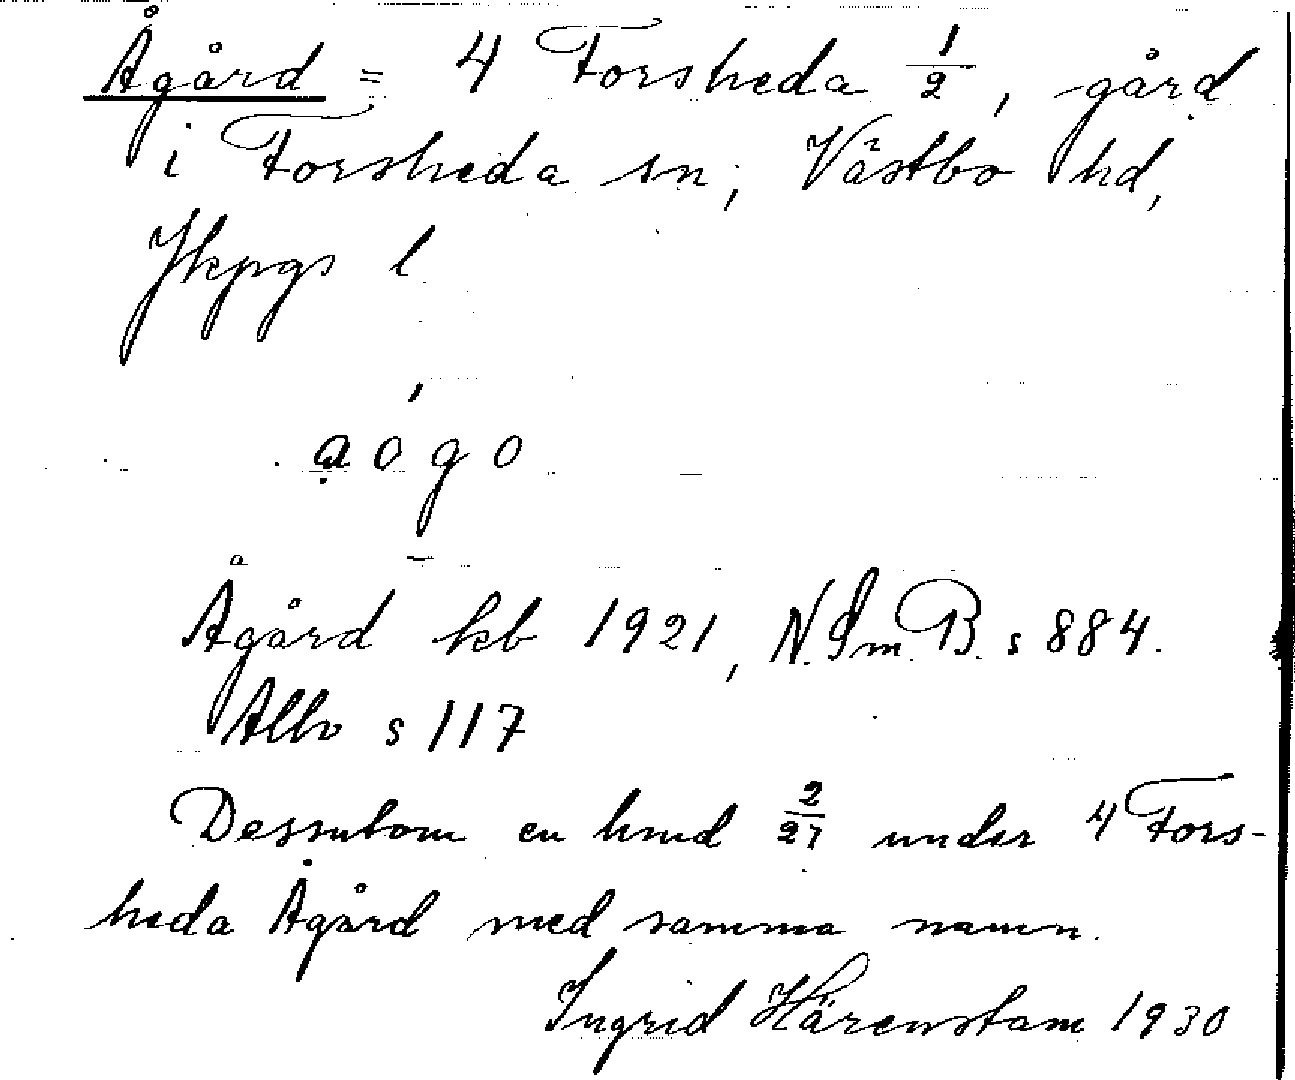 Ågård = 4 Forsheda 1/2, gård
i Forsheda sn, Västbo hd,
Jkpgs l
ạógo
Ågård kb 1921, N. Sm. B. s 884.
Allbo s 117
Dessutom en hmd 2/27 under 4 Fors-
heda Ågård med samma namn.
Ingrid Härenstam 1930